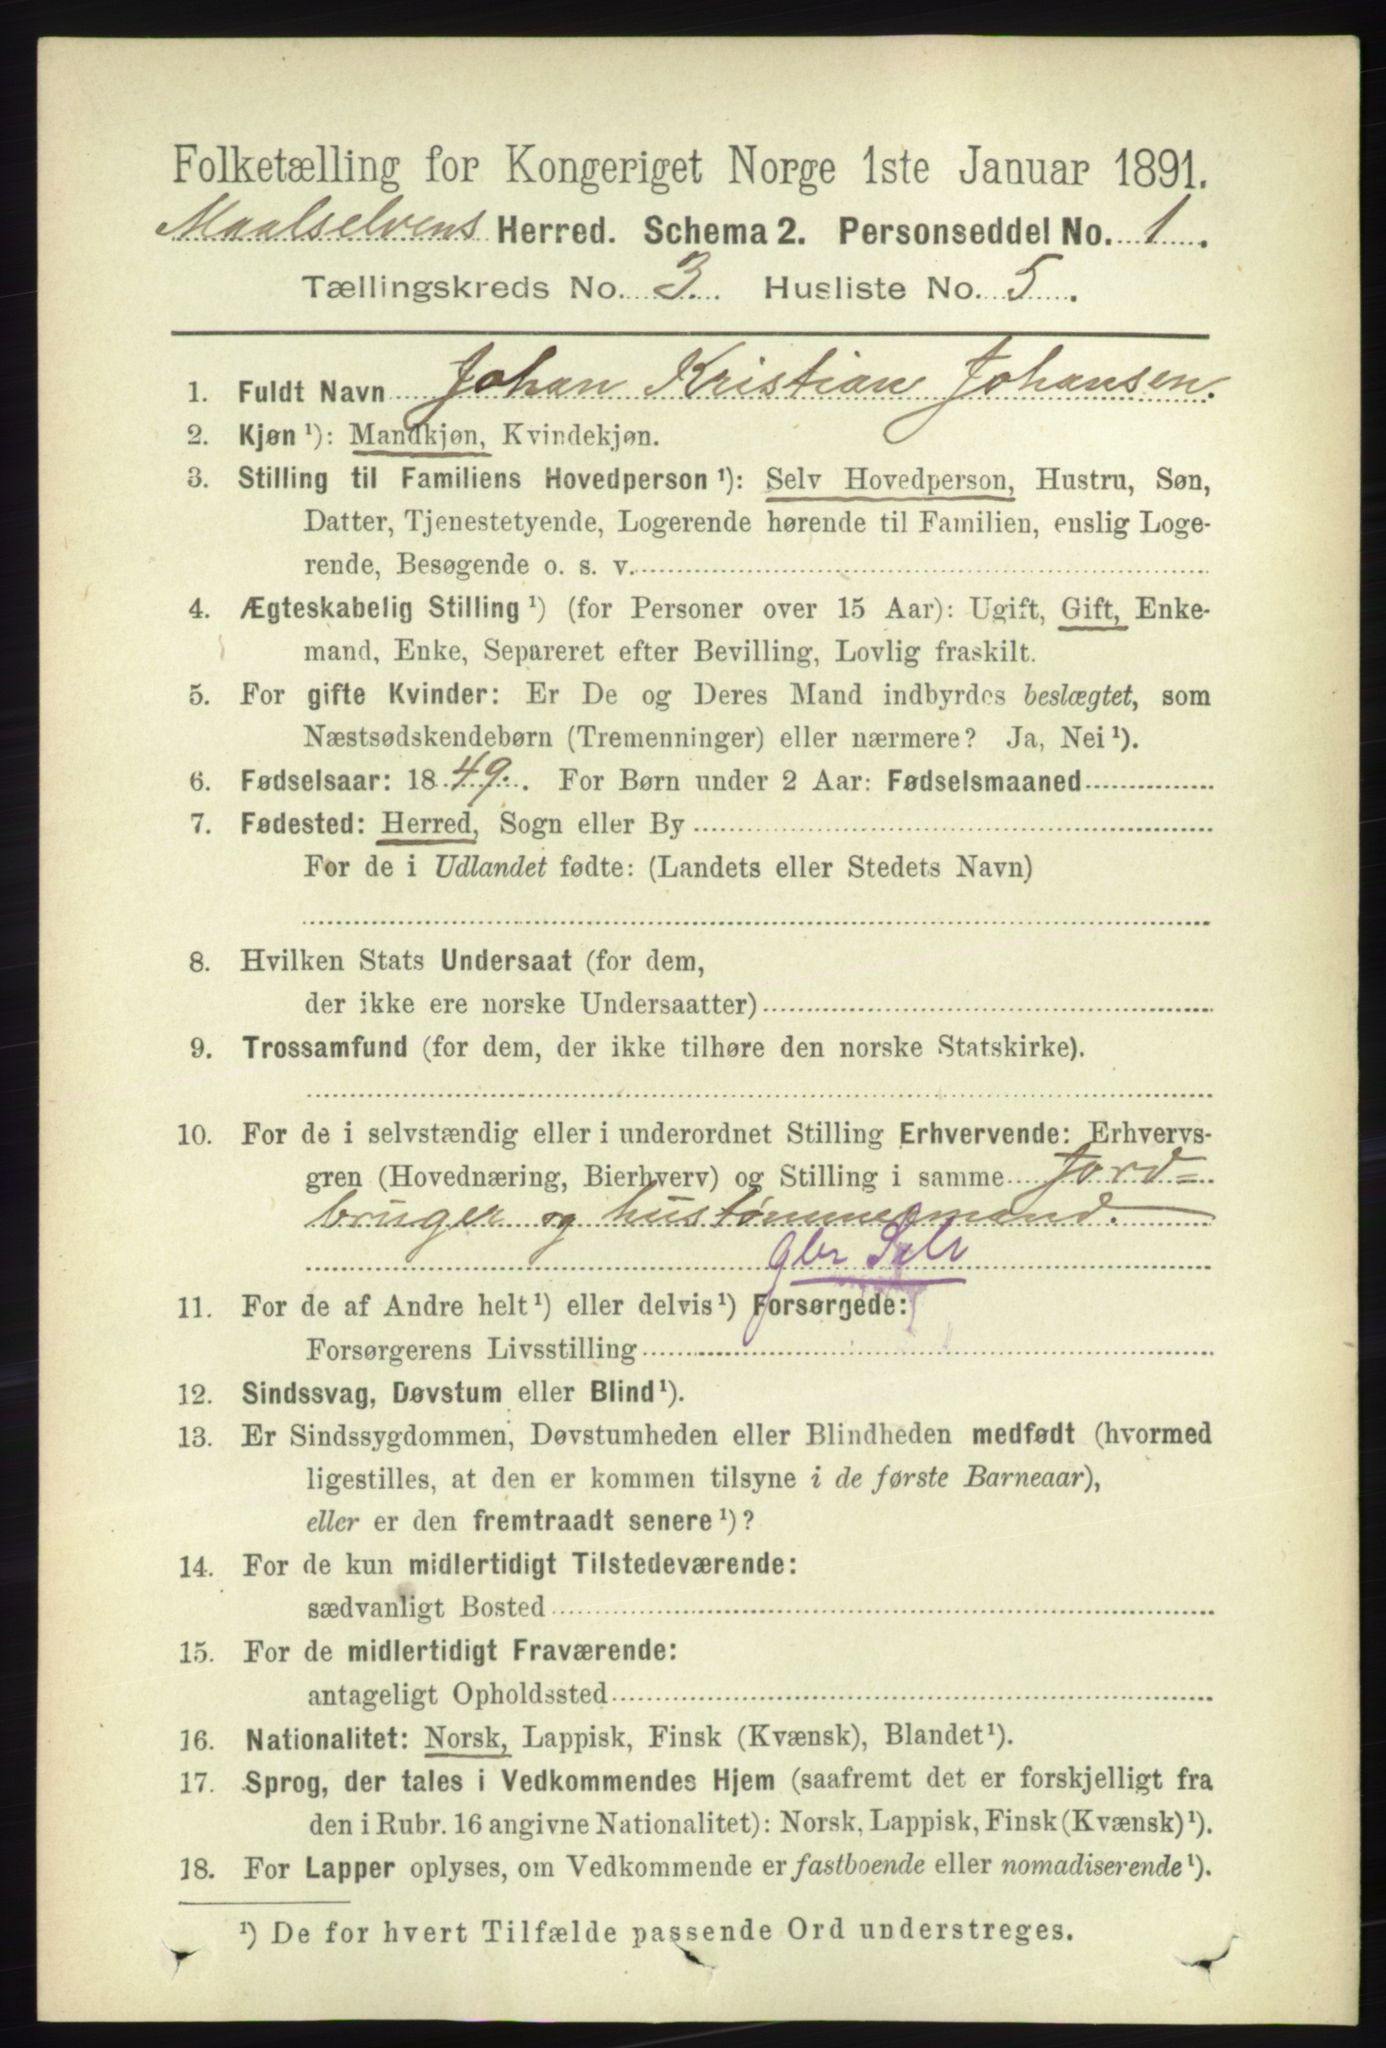 Folketælling for Kongeriget Norge 1ste Januar 1891.
Maalselvens Herred. Schema 2. Personseddel No. 1.
Tællingskreds No. 3. Husliste No. 5.
1. Fuldt Navn Johan Kristian Johansen.
2. Kjøn ¹): Mandkjøn, Kvindekjøn.
3. Stilling til Familiens Hovedperson ¹): Selv Hovedperson, Hustru, Søn,
Datter, Tjenestetyende, Logerende hørende til Familien, enslig Loge-
rende, Besøgende o. s. v.
4. Ægteskabelig Stilling ¹) (for Personer over 15 Aar): Ugift, Gift, Enke-
mand, Enke, Separeret efter Bevilling, Lovlig fraskilt.
5. For gifte Kvinder: Er De og Deres Mand indbyrdes beslægtet, som
Næstsødskendebørn (Tremenninger) eller nærmere? Ja, Nei ¹).
6. Fødselsaar: 1849. For Børn under 2 Aar: Fødselsmaaned
7. Fødested: Herred, Sogn eller By
For de i Udlandet fødte: (Landets eller Stedets Navn)
8. Hvilken Stats Undersaat (for dem,
der ikke ere norske Undersaatter)
9. Trossamfund (for dem, der ikke tilhøre den norske Statskirke).
10. For de i selvstændig eller i underordnet Stilling Erhvervende: Erhvervs-
gren (Hovednæring, Bierhverv) og Stilling i samme Jord=
bruger og hustømmermand.
gbr Selv
11. For de af Andre helt ¹) eller delvis ¹) Forsørgede:
Forsørgerens Livsstilling
12. Sindssvag, Døvstum eller Blind ¹).
13. Er Sindssygdommen, Døvstumheden eller Blindheden medfødt (hvormed
ligestilles, at den er kommen tilsyne i de første Barneaar),
eller er den fremtraadt senere ¹)?
14. For de kun midlertidigt Tilstedeværende:
sædvanligt Bosted
15. For de midlertidigt Fraværende:
antageligt Opholdssted
16. Nationalitet: Norsk, Lappisk, Finsk (Kvænsk), Blandet ¹).
17. Sprog, der tales i Vedkommendes Hjem (saafremt det er forskjelligt fra
den i Rubr. 16 angivne Nationalitet): Norsk, Lappisk, Finsk (Kvænsk) ¹).
18. For Lapper oplyses, om Vedkommende er fastboende eller nomadiserende ¹).
¹) De for hvert Tilfælde passende Ord understreges.